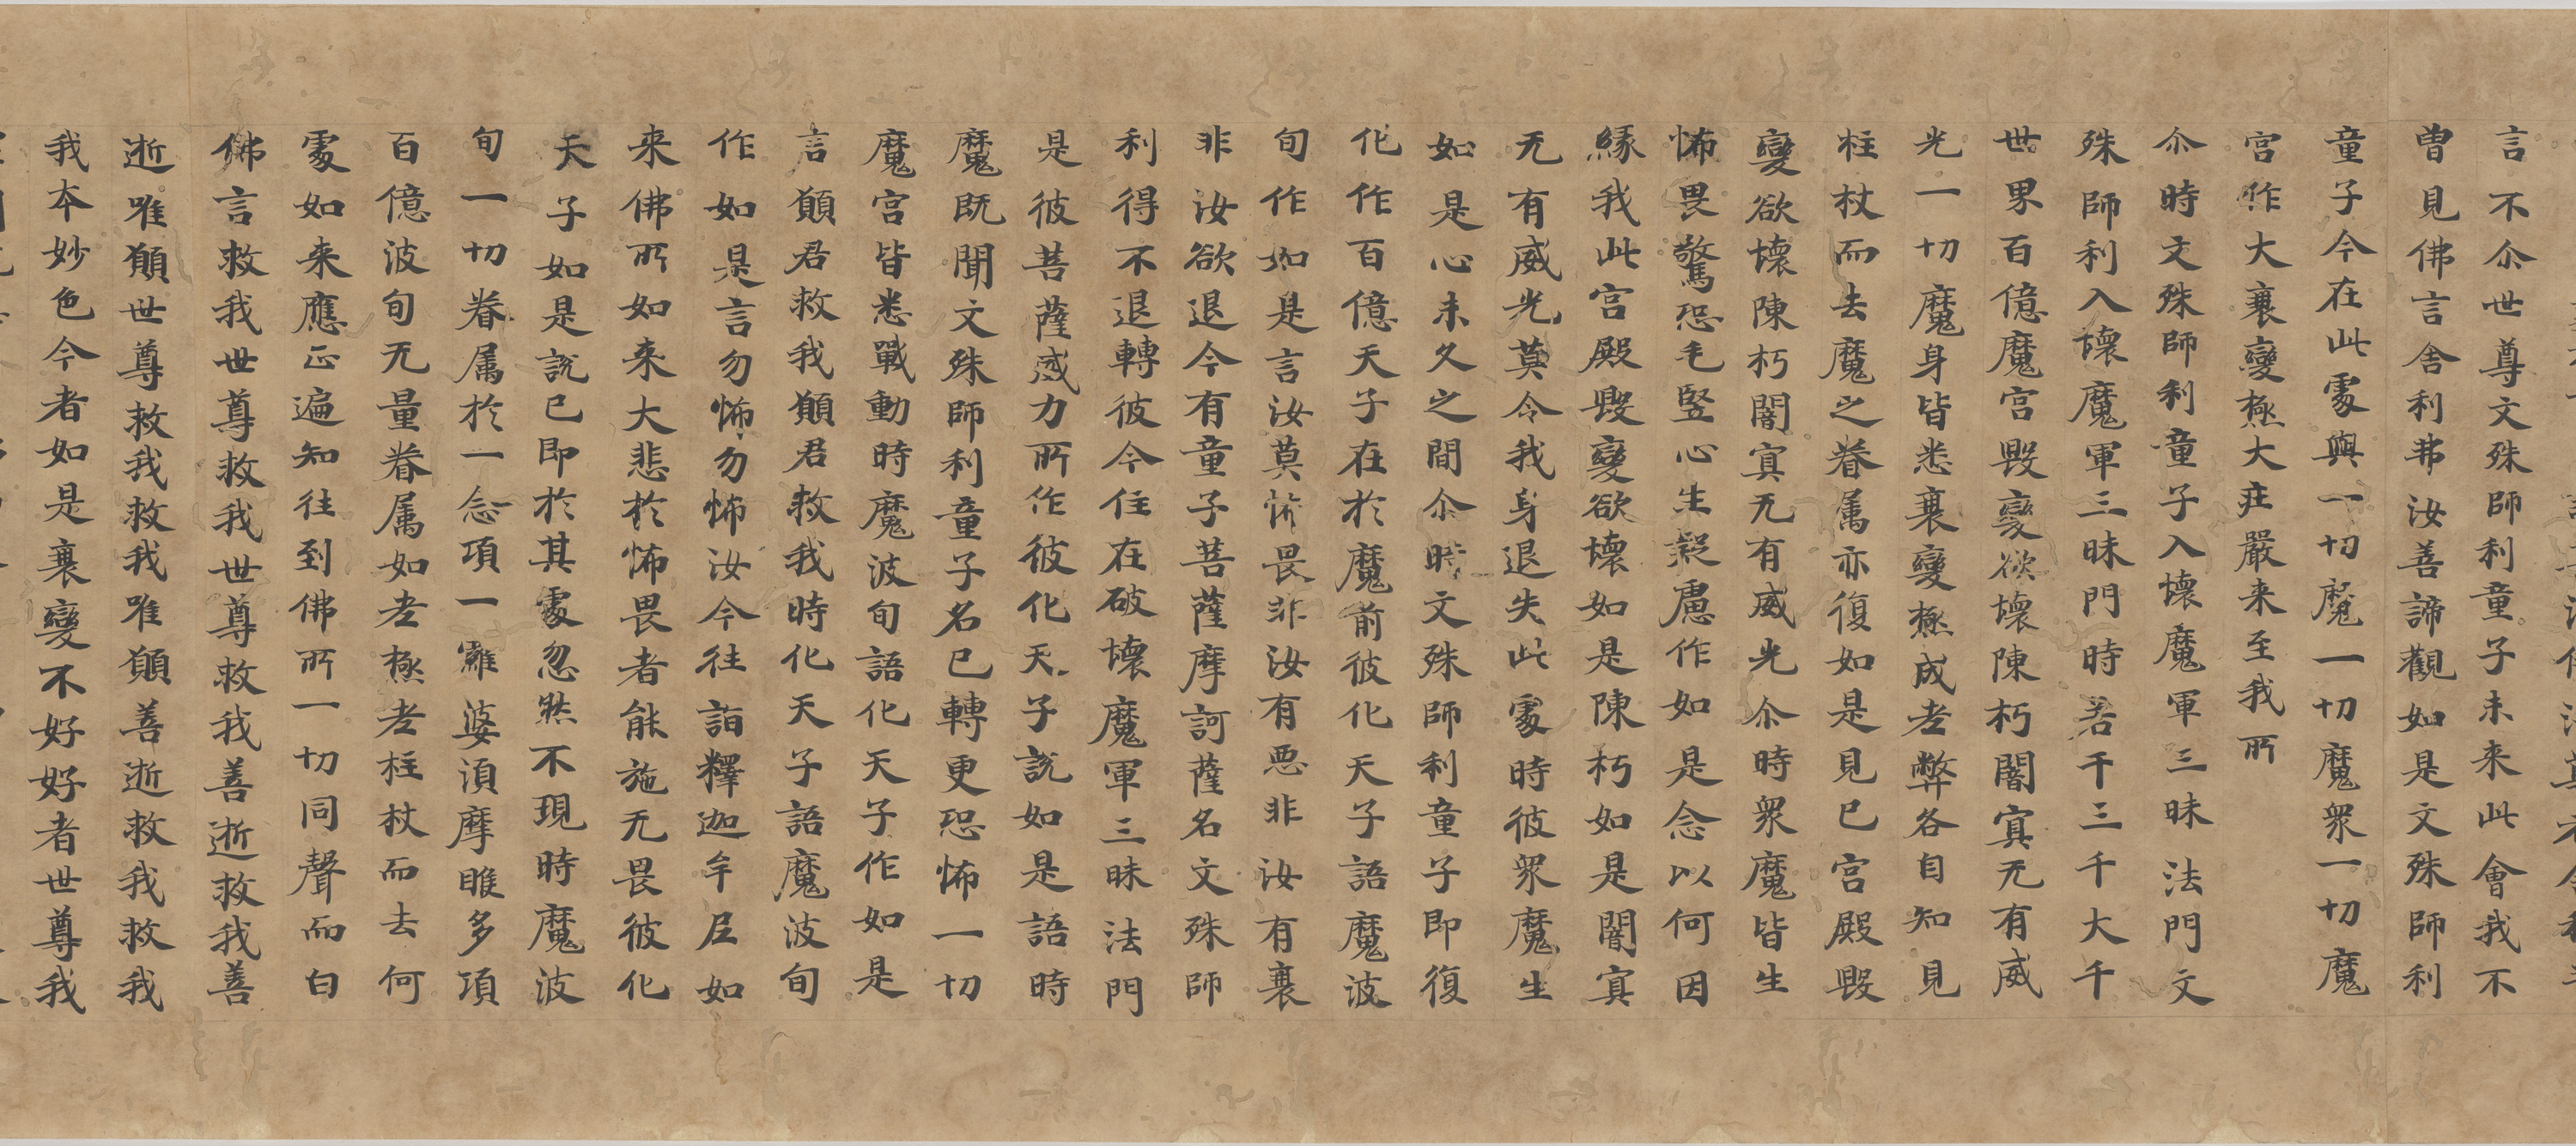 言不尒世尊文殊師利童子未来此會我不
曽見佛言舎利弗汝善諦觀如是文殊師利
童子今在此䖏與一切魔一切魔衆一切魔
宮作大衰變極大疘嚴来至我所
尒時文殊師利童子入懷魔軍三昧法門文
殊師利入壊魔軍三昧門時若干三千大千
世界百億魔宮毀變欲壊陳朽闇冥无有威
光一切魔身皆悉衰變極成老弊各自知見
柱杖而去魔之眷属亦復如是見已宮殿毀
變欲壊陳朽闇冥无有威光尒時衆魔皆生
怖畏驚恐毛竪心生疑慮作如是念以何因
縁我此宮殿毀變欲壊如是陳朽如是闇冥
无有威光莫令我身退失此䖏時彼衆魔生
如是心未久之間尒時文殊師利童子即復
化作百億天子在於魔前彼化天子語魔波
旬作如是言汝莫怖畏非汝有惡非汝有衰
非汝欲退今有童子菩薩摩訶薩名文殊師
利得不退轉彼今住在破壊魔軍三昧法門
是彼菩薩威力所作彼化天子說如是語時
魔既聞文殊師利童子名已轉更恐怖一切
魔宮皆悉戰動時魔波旬語化天子作如是
言願君救我願君救我時化天子語魔波旬
作如是言勿怖勿怖汝今往詣釋迦牟尼如
来佛所如来大悲於怖畏者能施无畏彼化
天子如是說已即於其䖏忽然不現時魔波
旬一切眷属於一念項一羅婆湏摩睺多項
百億波旬无量眷属如老極老柱杖而去何
䖏如来應正遍知往到佛所一切同聲而白
佛言救我世尊救我世尊救我善逝救我善
逝唯願世尊救我救我唯願善逝救我救我
我本妙色今者如是衰變不好好者世尊我